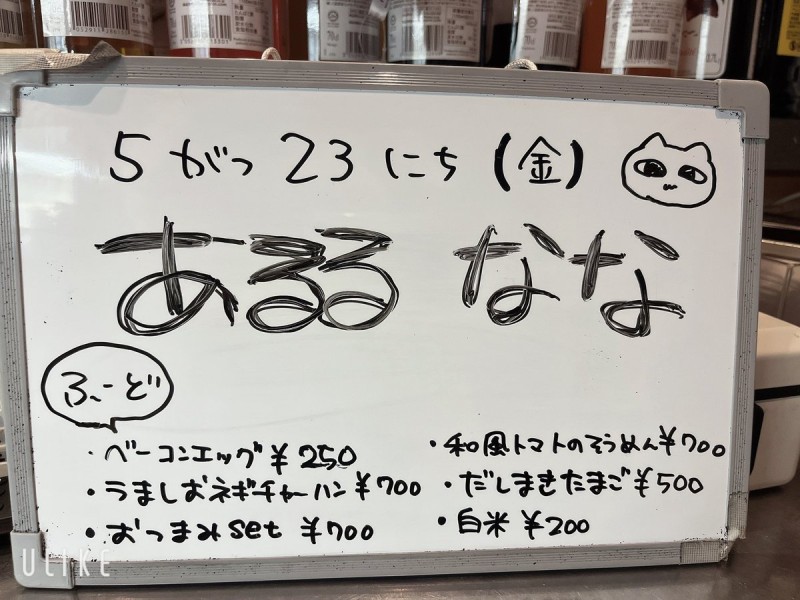 5がつ23にち(金)
あるる なな
ふーど
・ベーコンエッグ¥250
・うましおネギチャーハン¥700
・おつまみset ¥700
・和風トマトのそうめん¥700
・だしまきたまご¥500
・白米 ¥200
ULIKE